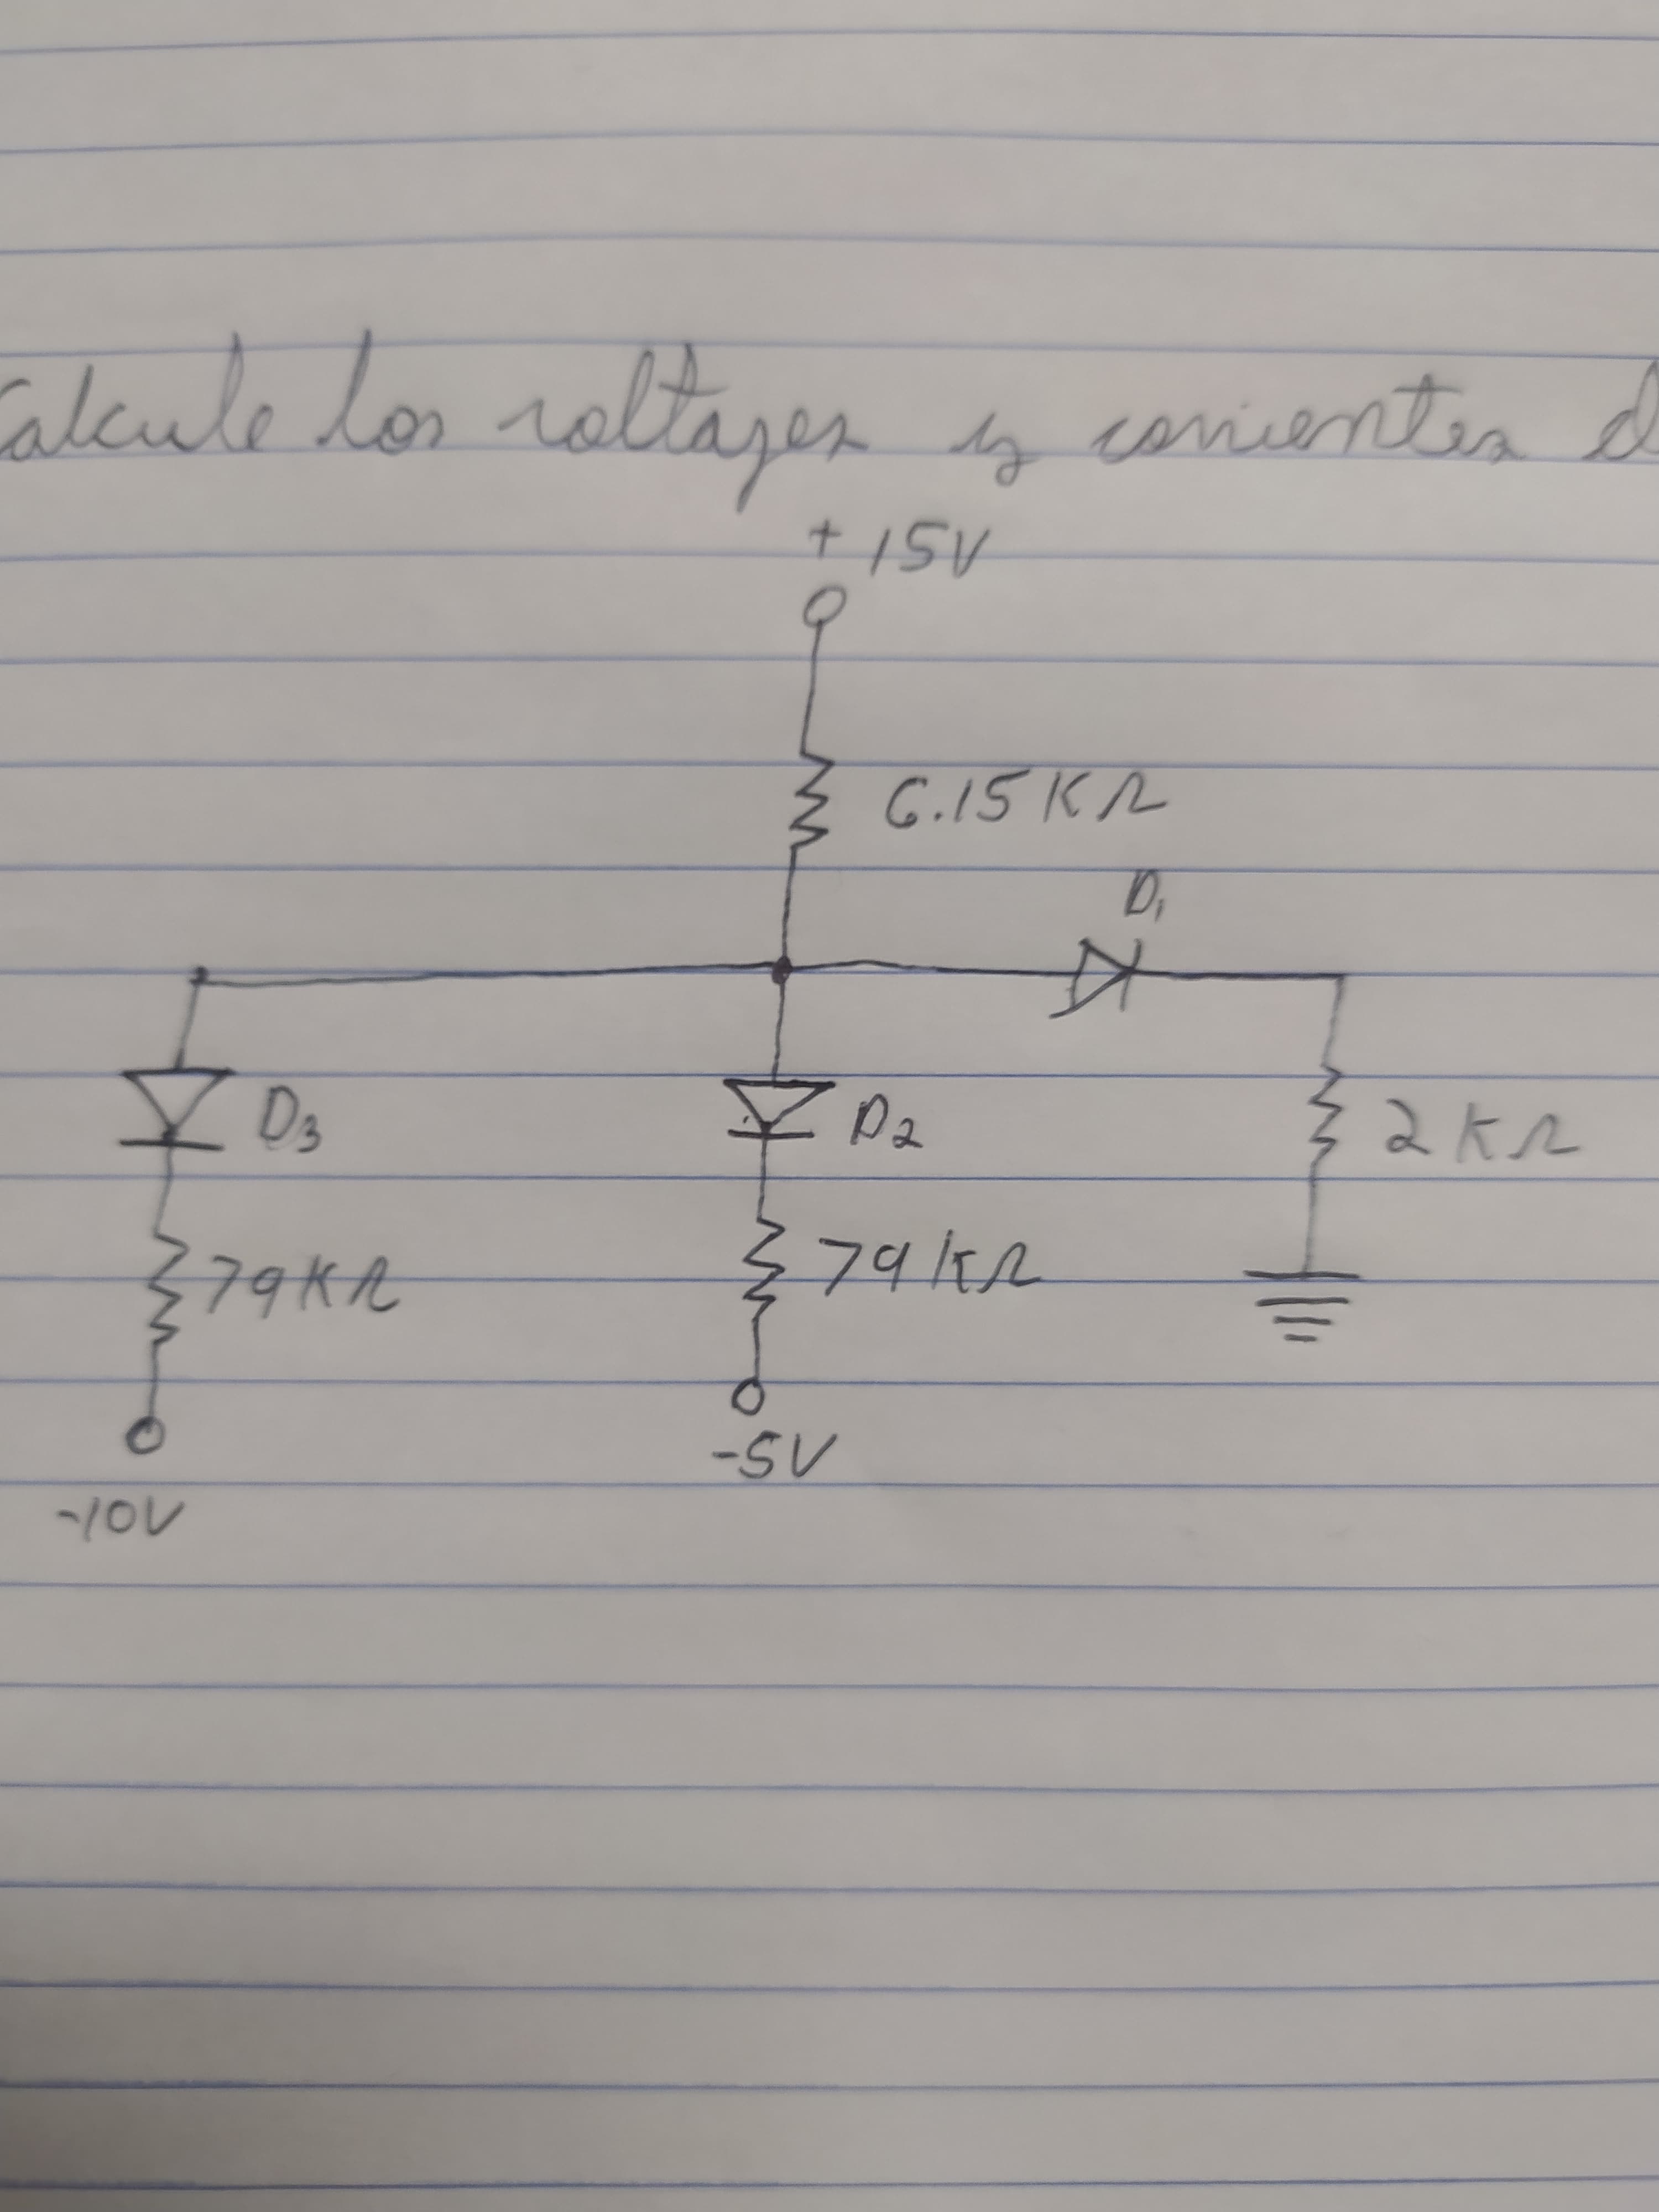 Calcule los voltajes y corrientes d
+ 15V
6.15 KΩ
D1
D3
D2
2 KΩ
79 KΩ
79 KΩ
-5V
-10V